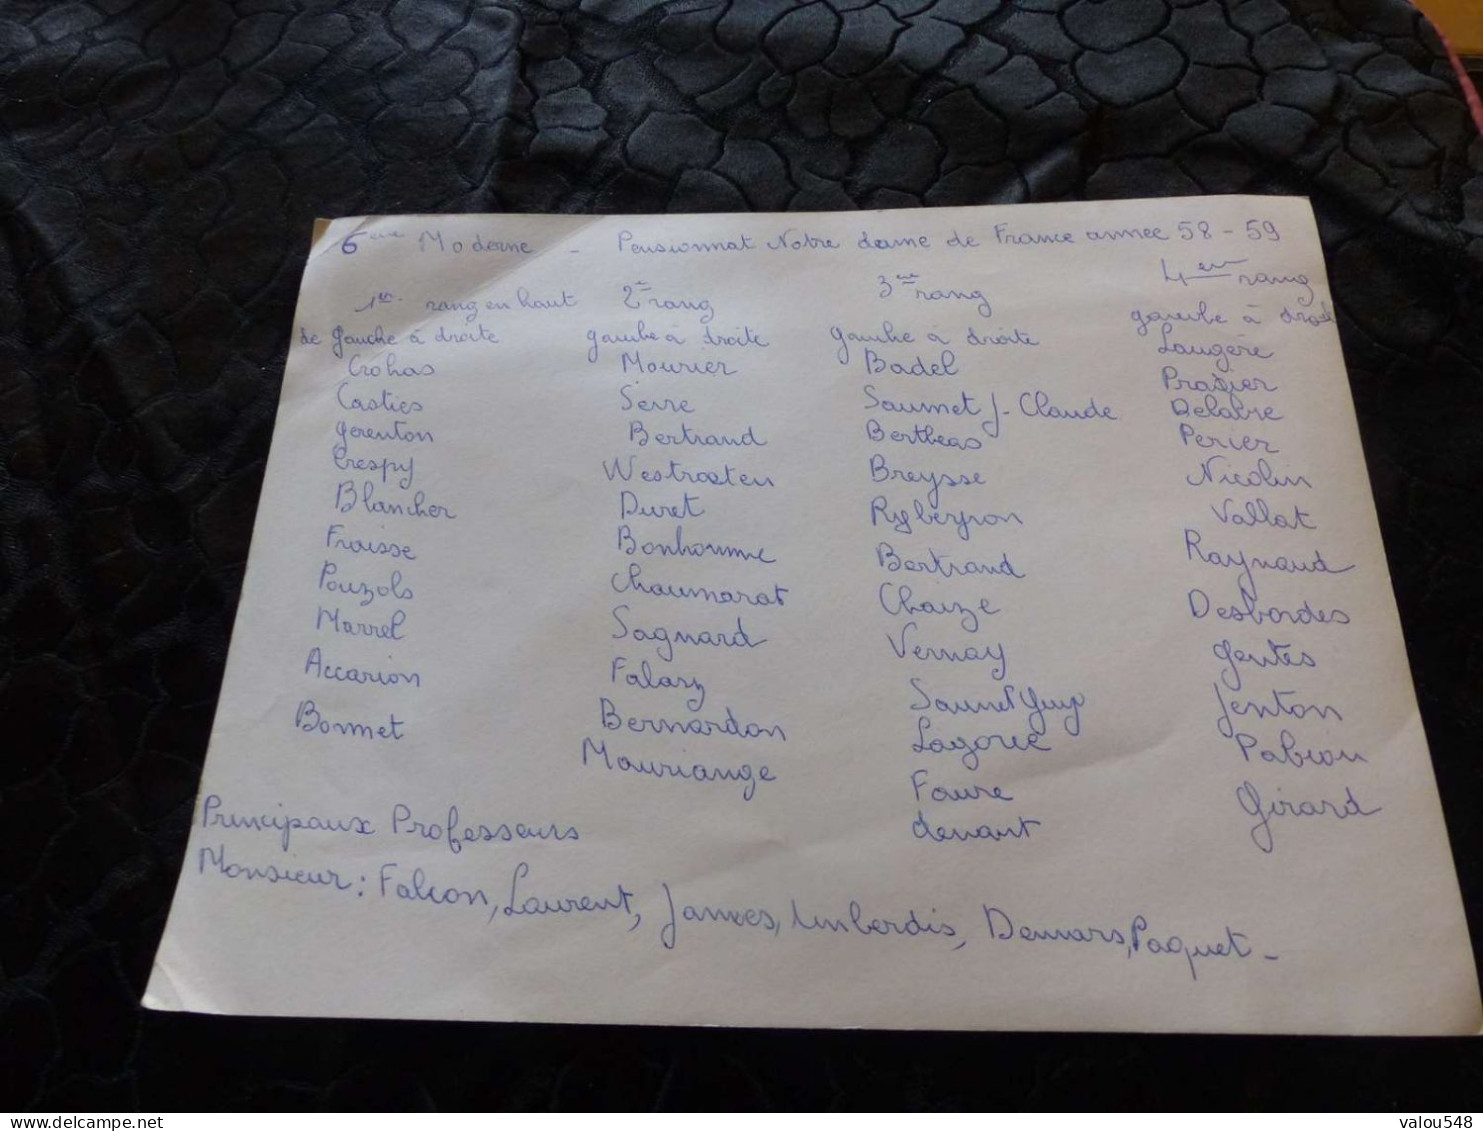 6ème Moderne - Pensionnat Notre dame de France annee 58-59
1er rang en haut
de gauche à droite
Crohas
Casties
Gerenton
Crespy
Blancher
Fraisse
Pouzols
Marrel
Accarion
Bonnet
2e rang
gauche à droite
Mourier
Serre
Bertrand
Westrosten
Duret
Bonhomme
Chaumarat
Sagnard
Falary
Bernardon
Mauriange
3eme rang
gauche à droite
Badel
Saumet J-Claude
Bertheas
Breysse
Rybeyron
Bertrand
Chaize
Vernay
Saumet Guy
Lagoree
Faure
denant
4em rang
gauche à droite
Laugère
Prasier
Delabre
Perier
Nicolin
Vallat
Raynaud
Desbordes
Gentes
Jenton
Pabiou
Girard
Principaux Professeurs
Monsieur : Falcon, Laurent, James, Imberdis, Demars, Paquet -
valou548